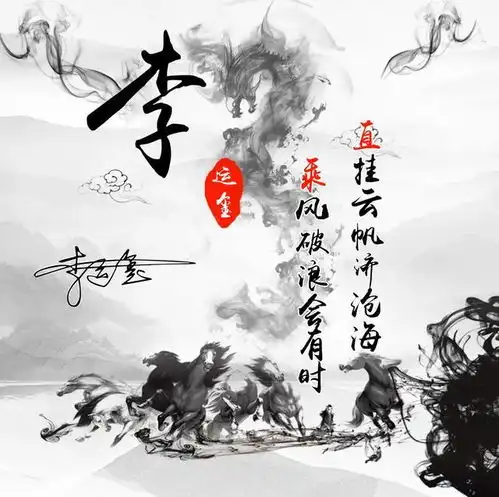 李
运金
乘风破浪会有时
直挂云帆济沧海